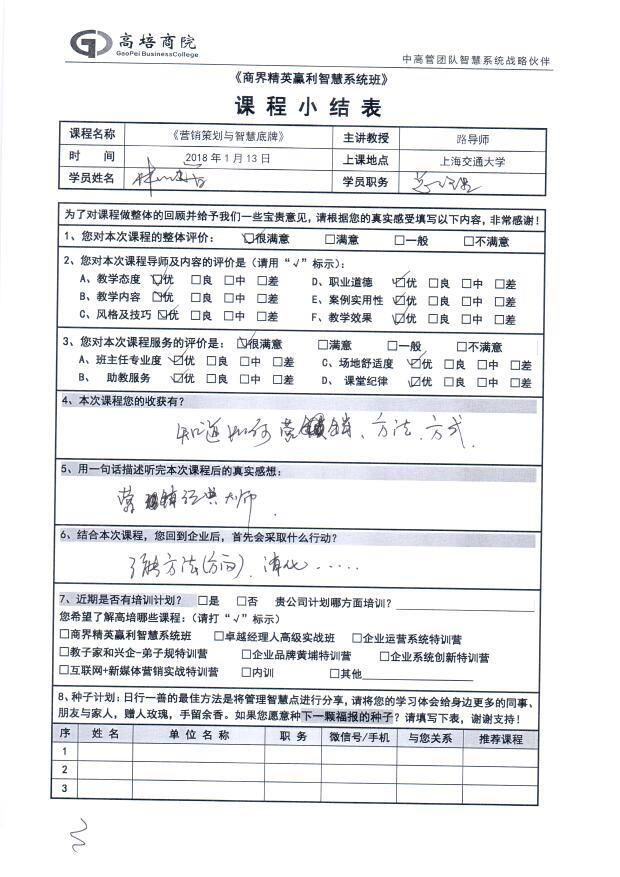 高培商院
GaoPei BusinessCollege
中高管团队智慧系统战略伙伴
《商界精英赢利智慧系统班》
课程小结表
课程名称 《营销策划与智慧底牌》 主讲教授 路导师
时 间 2018年1月13日 上课地点 上海交通大学
学员姓名 学员职务
为了对课程做整体的回顾并给予我们一些宝贵意见,请根据您的真实感受填写以下内容,非常感谢!
1、您对本次课程的整体评价: ☑很满意 □满意 □一般 □不满意
2、您对本次课程导师及内容的评价是(请用“√”标示):
A、教学态度 ☑优 □良 □中 □差 D、职业道德 ☑优 □良 □中 □差
B、教学内容 ☑优 □良 □中 □差 E、案例实用性 ☑优 □良 □中 □差
C、风格及技巧 ☑优 □良 □中 □差 F、教学效果 ☑优 □良 □中 □差
3、您对本次课程服务的评价是: ☑很满意 □满意 □一般 □不满意
A、班主任专业度 ☑优 □良 □中 □差 C、场地舒适度 ☑优 □良 □中 □差
B、 助教服务 ☑优 □良 □中 □差 D、 课堂纪律 ☑优 □良 □中 □差
4、本次课程您的收获有?
知道如何营销、方法、方式.
5、用一句话描述听完本次课程后的真实感想:
营销经典大师.
6、结合本次课程,您回到企业后,首先会采取什么行动?
方法(方向)、消化......
7、近期是否有培训计划? □是 □否 贵公司计划哪方面培训?
您希望了解高培哪些课程:(请打“√”标示)
□商界精英赢利智慧系统班 □卓越经理人高级实战班 □企业运营系统特训营
□教子家和兴企-弟子规特训营 □企业品牌黄埔特训营 □企业系统创新特训营
□互联网+新媒体营销实战特训营 □内训 □其他
8、种子计划:日行一善的最佳方法是将管理智慧点进行分享,请将您的学习体会给身边更多的同事、
朋友与家人,赠人玫瑰,手留余香。如果您愿意种下一颗福报的种子?请填写下表,谢谢支持!
序 姓 名 单 位 名 称 职 务 微信号/手机 与您关系 推荐课程
1
2
3